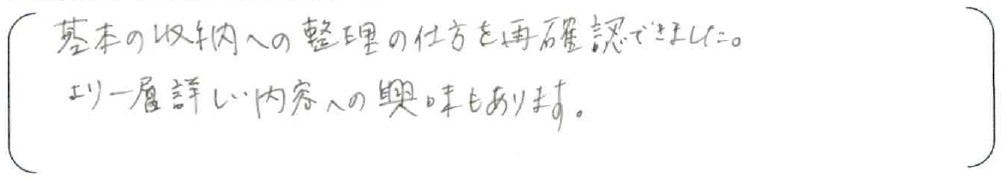 基本の収納への整理の仕方を再確認できました。
より一層詳しい内容への興味もあります。